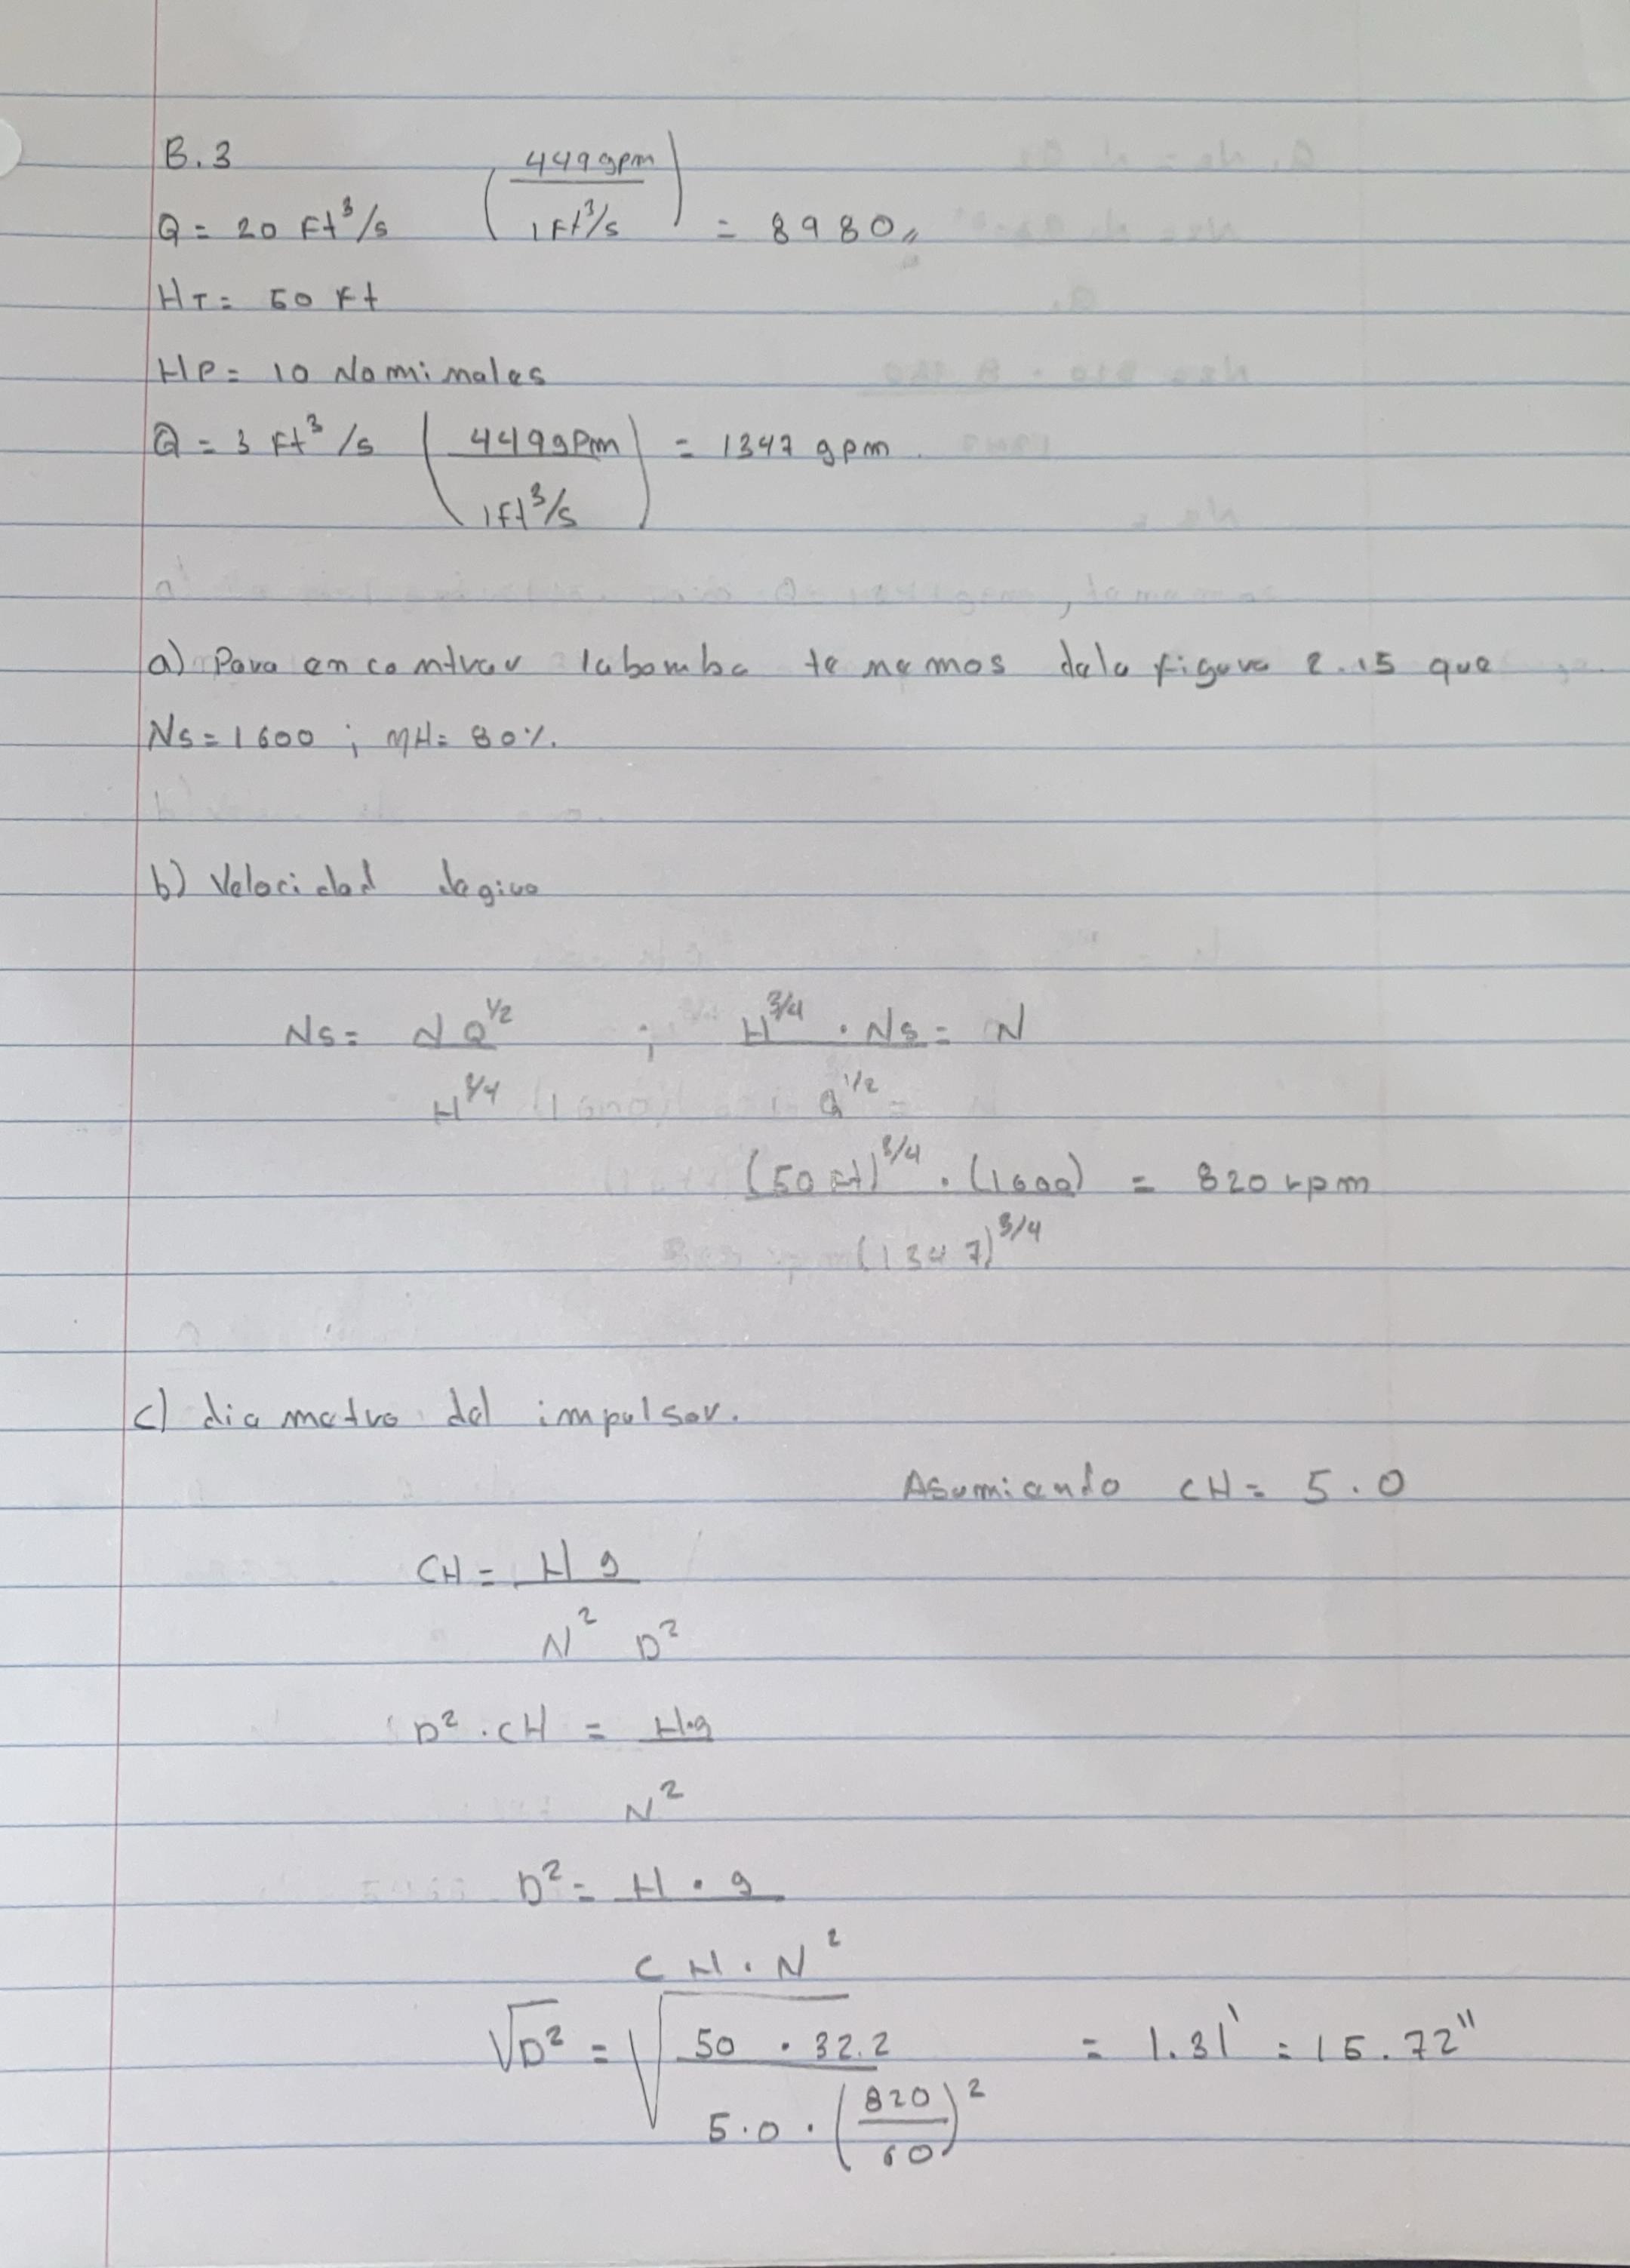 B.3
Q = 20 Ft³/s (449gpm / 1Ft³/s) = 8980,,
HT = 50 Ft
HP = 10 Nominales
Q = 3 Ft³/s (449gpm / 1Ft³/s) = 1347 gpm
a) Para encontrar la bomba tenemos de la figura 2.15 que
Ns = 1600 ; ηH = 80%.
b) Velocidad de giro
Ns = N Q^1/2 / H^3/4 ; H^3/4 · Ns / Q^1/2 = N
(50 Ft)^3/4 · (1600) / (1347)^3/4 = 820 rpm
c) diametro del impulsor.
Asumiendo CH = 5.0
CH = H g / N² D²
D² · CH = H·g / N²
D² = H · g / CH · N²
√D² = √(50 · 32.2 / 5.0 · (820/60)²) = 1.31' = 15.72"